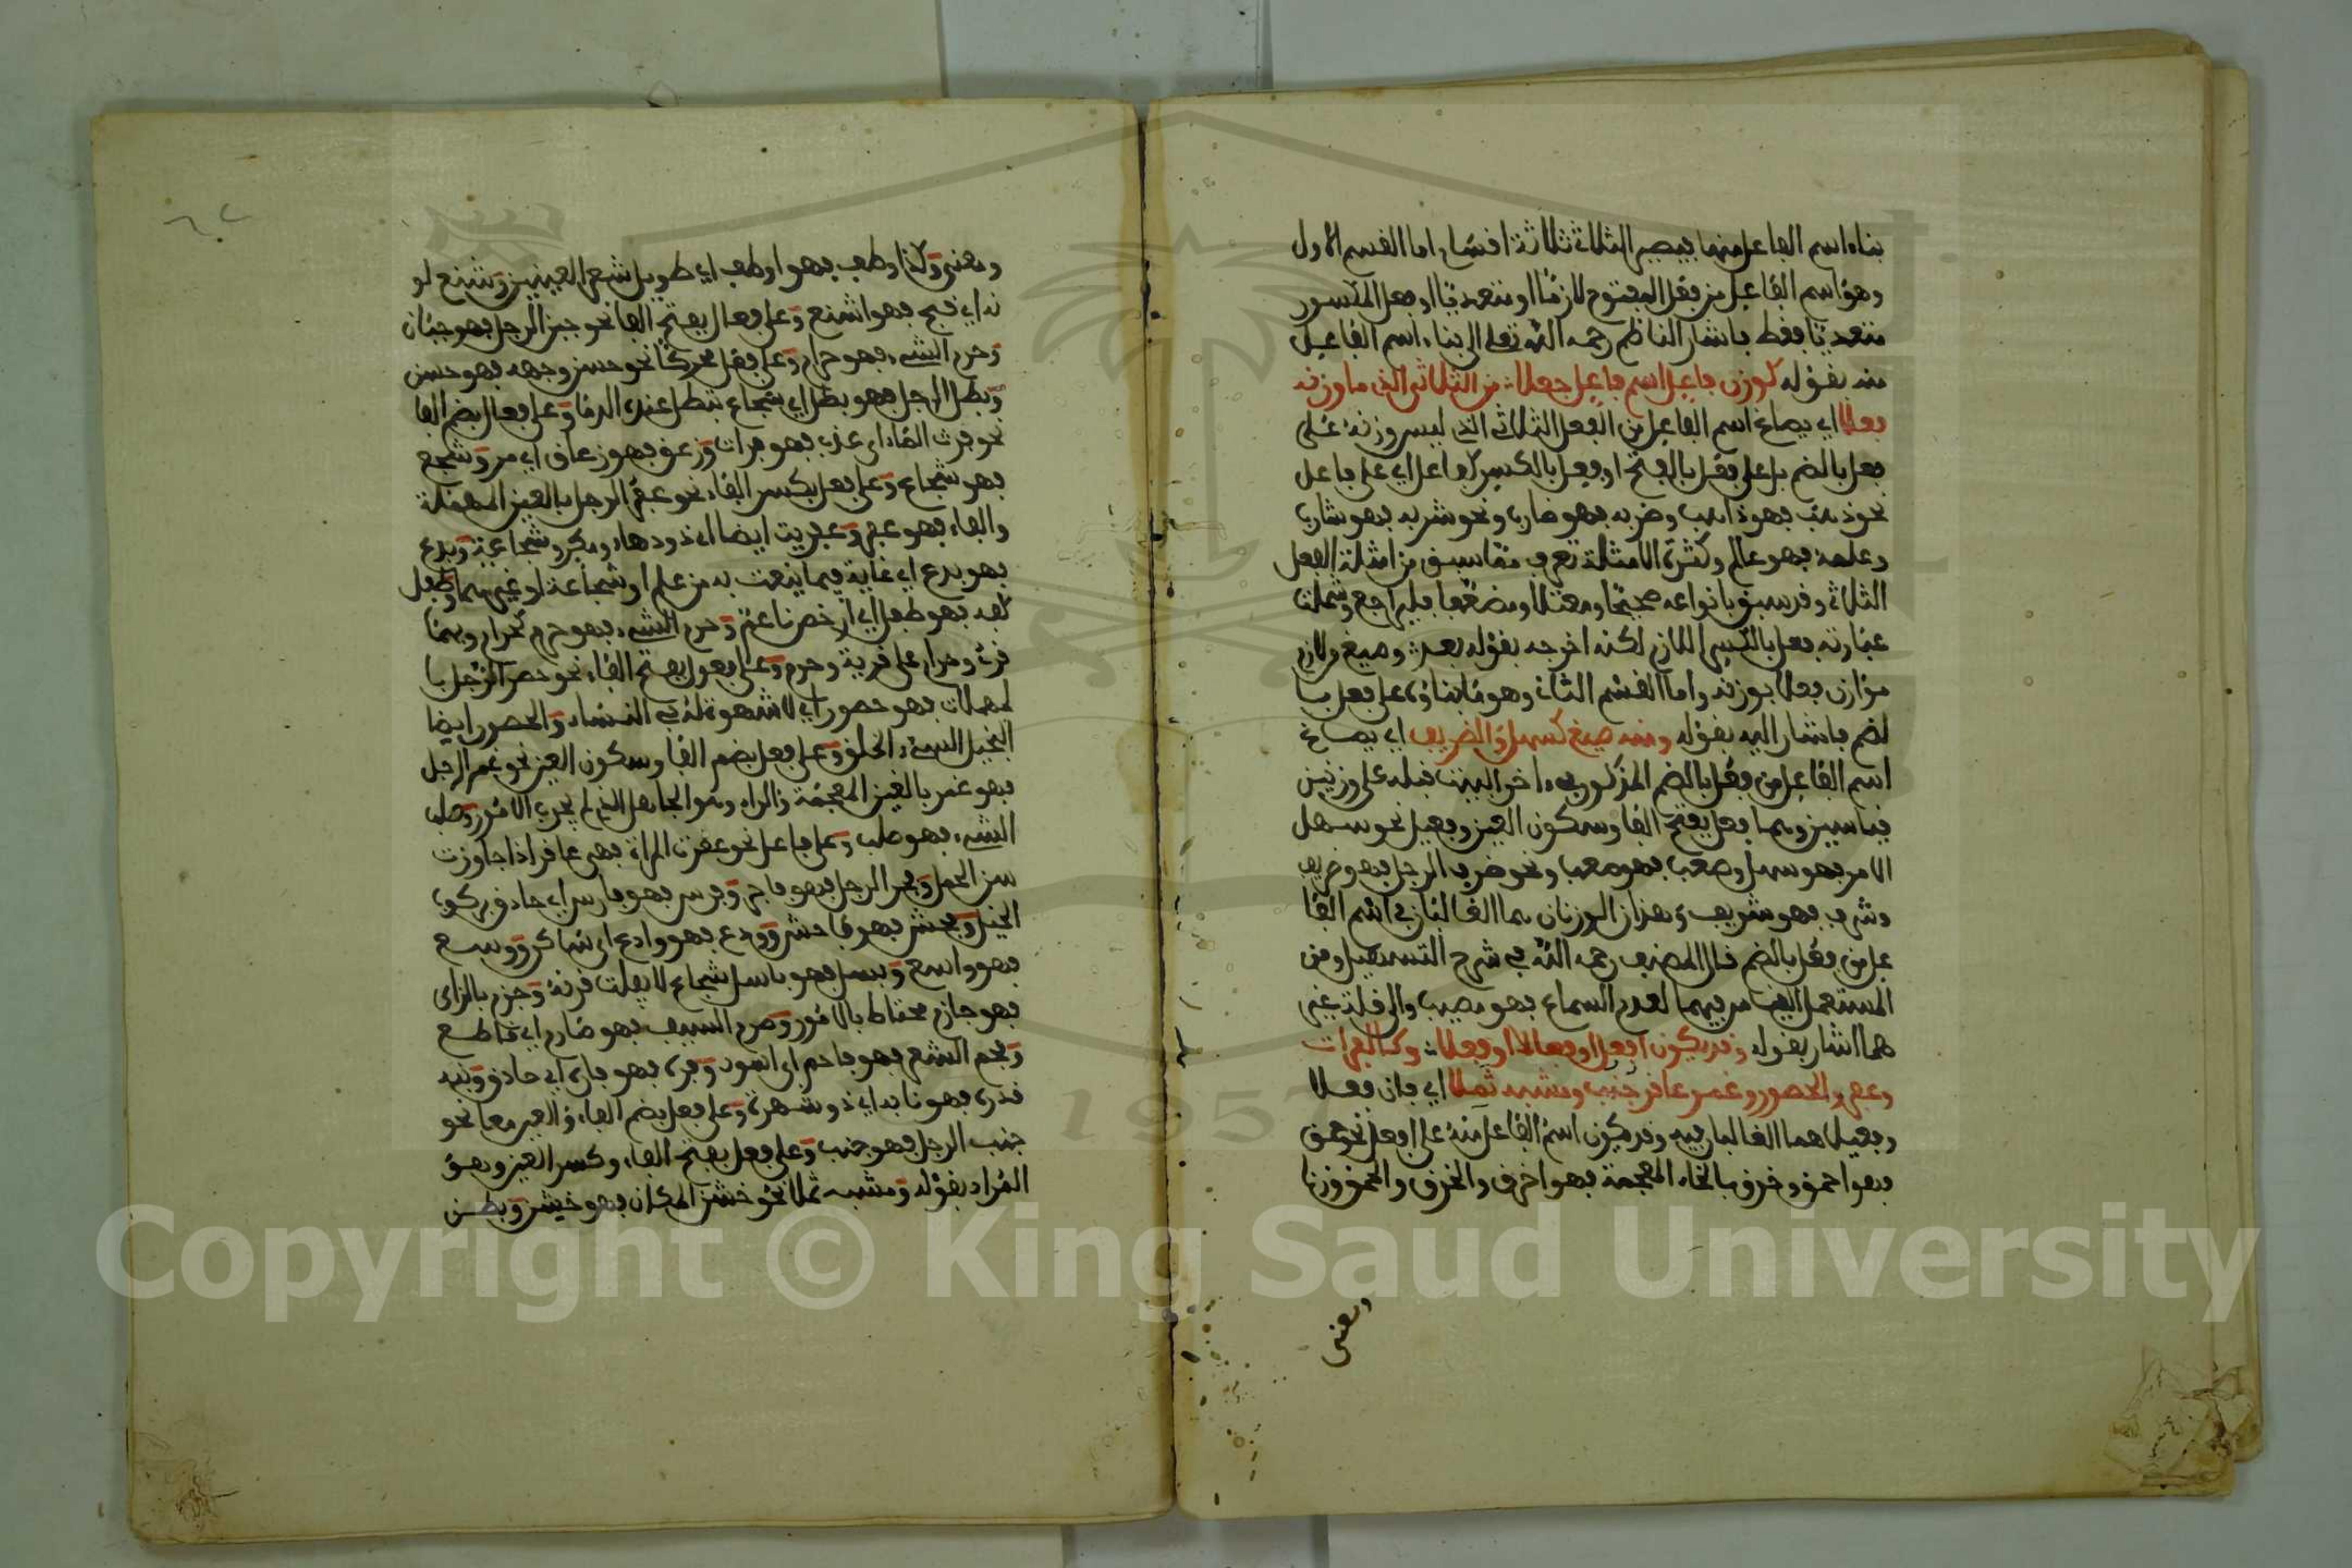 بناء اسم الفاعل منها فيصير الثلاثة ثلاثة اقسام اما القسم الاول
وهو اسم الفاعل من فعل المفتوح لازما او متعديا او فعل المكسور
متعديا فقط فاشار الناظم رحمه الله تعلى الى بناء اسم الفاعل
منه بقوله كوزن فاعل اسم فاعل جعلا من الثلاثي الذي ما وزنه
فعلا اي يصاغ اسم الفاعل من الفعل الثلاثي الذي ليس وزنه على
فعل بالضم بل على فعل بالفتح او فعل بالكسر كفاعل اي على فاعل
نحو ذهب فهو ذاهب وضربه فهو ضارب ونحو شربه فهو شارب
وعلمه فهو عالم وكثرة الامثلة تعرف مما سبق من امثلة الفعل
الثلاثي وقد سبق بانواعه صحيحا ومعتلا ومضعفا فليراجع وشملت
عبارته فعل بالكسر اللازم لكنه اخرجه بقوله بعد وصيغ من لازم
موازن فعلا بوزنه واما القسم الثاني وهو ما بناؤه على فعل با
لضم فاشار اليه بقوله ومنه صيغ كسهل والظريف اي يصاغ
اسم الفاعل من فعل بالضم المذكور في ءاخر البيت قبله على وزنين
قياسيين وهما فعل بفتح الفا وسكون العين وفعيل نحو سهل
الامر فهو سهل وصعب فهو صعب ونحو ظرف الرجل فهو ظريف
وشرف فهو شريف وهذان الوزنان هما الغالبان في اسم الفا
عل من فعل بالضم قال المصنف رحمه الله في شرح التسهيل ومن
المستعمل القياس فيهما لعدم السماع فهو مصيب والى قلة غير
هما اشار بقوله وقد يكون افعل او فعالا او فعلا وكالفرات
وعفر والحصور وغمر عاقر جنب ومشبه ثملا اي فان فعلا
وفعيلا هما الغالبان فيه وقد يكون اسم الفاعل منه على افعل نحو حمق
فهو احمق وخرق بالخاء المعجمة فهو اخرق والخرق والحمق وزنا
ومعنى
ومعنى وكذا وطف فهو اوطف اي طويل شعر العينين وشنع لو
نه اي قبح فهو اشنع وعلى فعال بفتح الفا نحو جبن الرجل فهو جبان
وحرم الشيء فهو حرام وعلى فعل محركا نحو حسن وجهه فهو حسن
وبطل الرجل فهو بطل اي شجاع تبطل عنده الدما وعلى فعال بضم الفا
نحو فرت الماء اي عذب فهو فرات وزعق فهو زعاق اي مر وشجع
فهو شجاع وعلى فعل بكسر الفاء نحو عفر الرجل بالعين المهملة
والفاء فهو عفر وعفريت ايضا اي ذو دهاء ومكر وشجاعة وبدع
فهو بدع اي غاية فيما ينعت به من علم او شجاعة او غيرهما وطفل
كفه فهو طفل اي رخص ناعم وحرم الشيء فهو حرم كحرام وبهما
قرئ وحرام على قرية وحرم وعلى فعول بفتح الفاء نحو حصر الرجل با
لمهملات فهو حصور اي لا شهوة له في النساء والحصور ايضا
البخيل السيء الخلق وعلى فعل بضم الفا وسكون العين نحو غمر الرجل
فهو غمر بالغين المعجمة والراء وهو الجاهل الذي لم يجرب الامور وصلب
الشيء فهو صلب وعلى فاعل نحو عقرت المراة فهي عاقر اذا جاوزت
سن الحمل وفجر الرجل فهو فاجر وفرس فهو فارس اي حاذق بركوب
الخيل وفحش فهو فاحش وودع فهو وادع اي ساكن ووسع
فهو واسع وبسل فهو باسل شجاع لا يفلت قرنه وحزم بالزاي
فهو حازم محتاط بالامور وصرم السيف فهو صارم اي قاطع
وفحم الشعر فهو فاحم اي اسود وفره فهو فاره اي حاذق ونبه
قدره فهو نابه اي ذو شهرة وعلى فعل بضم الفاء والعين معا نحو
جنب الرجل فهو جنب وعلى فعل بفتح الفاء وكسر العين وهو
المراد بقوله ومشبه ثملا نحو خشن المكان فهو خشن وبطن
Copyright © King Saud University
1957